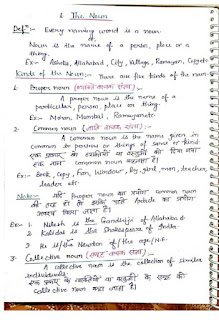 1. The Noun
Defⁿ :- Every naming word is a noun
or
Noun is the name of a person, place or a thing.
Ex:- Ashita, Allahabad, City, Village, Ramayan,
Kinds of the Noun:- There are five kinds of the noun-
1. Proper noun (व्यक्ति वाचक संज्ञा) :-
A proper noun is the name of a particular, person, place or thing.
Ex:- Mohan, Mumbai, Ramayanetc.
2. Common noun (जाति वाचक संज्ञा) :-
A common noun is the name given in common to persons or things of same or kind.
Common noun
Ex:- Book, Copy, Fan, Window, Boy, girl, man, teacher, leader etc.
Note:- यदि Proper noun का प्रयोग Common noun
की तरह हो तो इसके पहले Article का प्रयोग
किया जाता है।
Ex- 1. Nilesh is the Gandhiji of Allahabad.
2. Kalidas is the Shakespeare of India.
3. He is the Newton of the age/N.F.
3. Collective noun (समूह वाचक संज्ञा) :-
A collective noun is the collection of similar individuals.
एक प्रकार के व्यक्तियों या वस्तुओं के समूह को
Collective noun कहा जाता है।